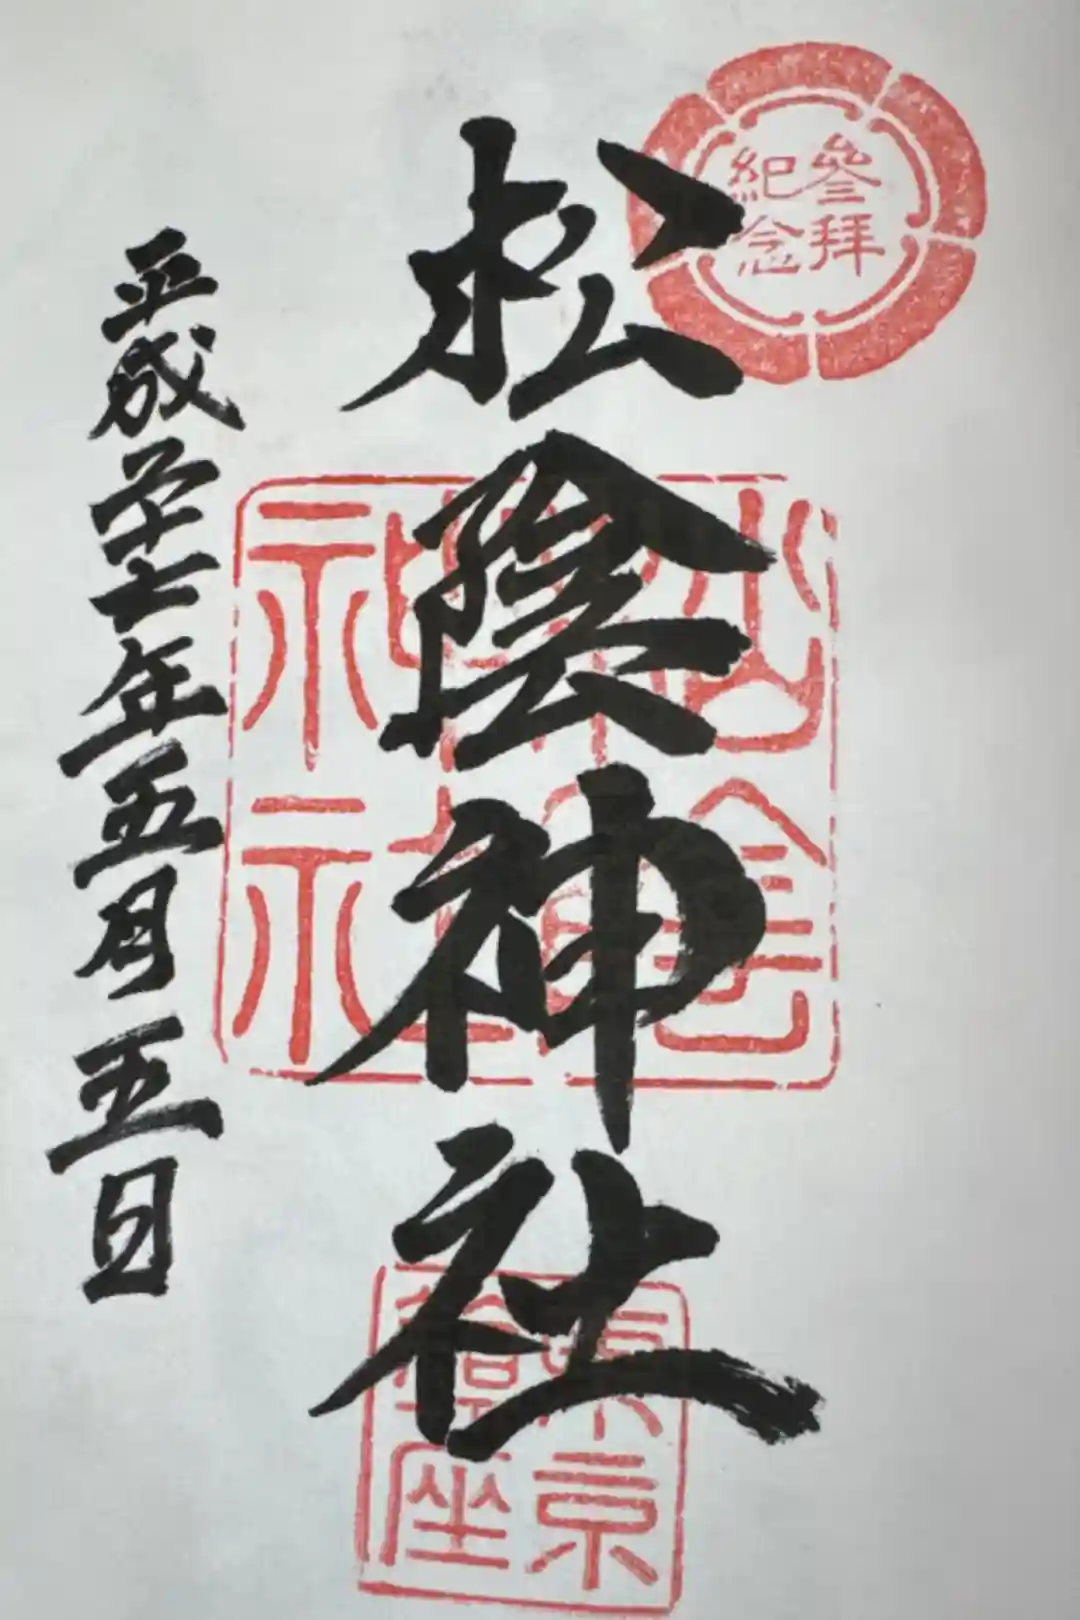 參拝
紀念
松陰神社
松陰
神社
東京
鎮座
平成二十七年五月五日